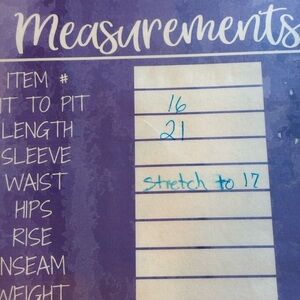 Measurements
ITEM #
IT TO PIT 16
LENGTH 21
SLEEVE
WAIST Stretch to 17
HIPS
RISE
NSEAM
WEIGHT